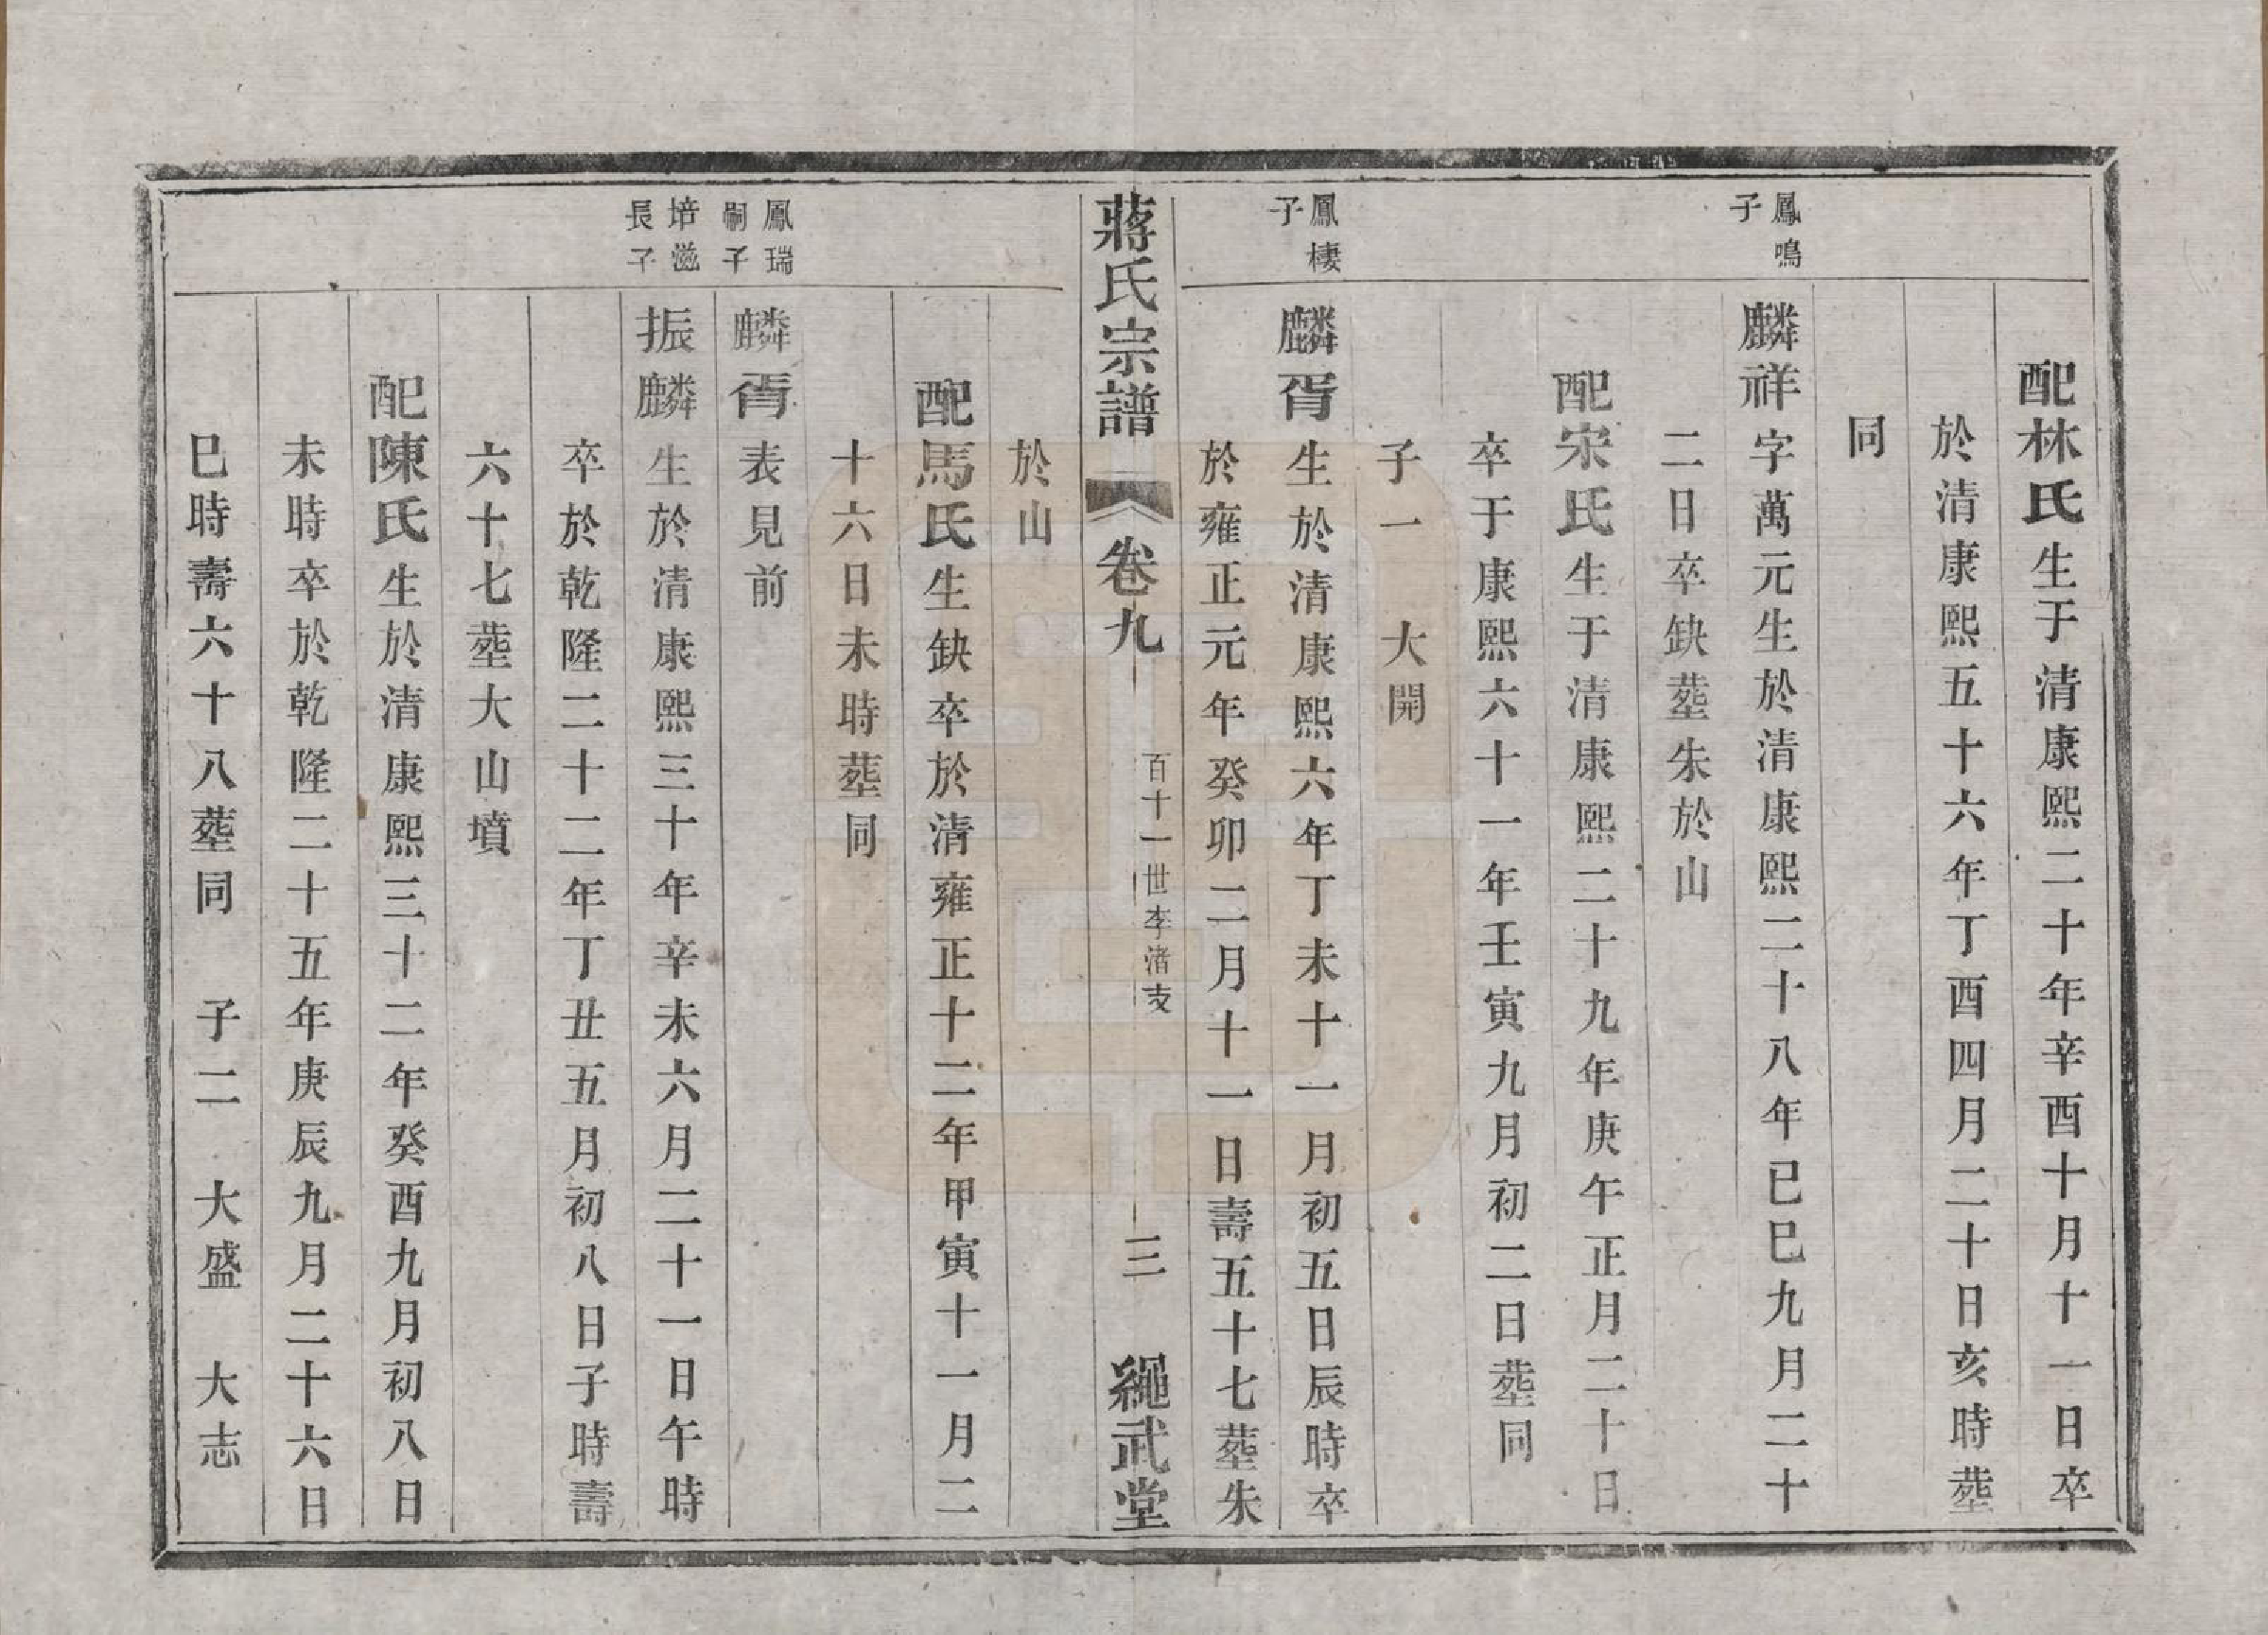 配林氏生于清康熙二十年辛酉十月十一日卒
於清康熙五十六年丁酉四月二十日亥時塟
同
鳳鳴
子
麟祥字萬元生於清康熙二十八年已巳九月二十
二日卒缺塟朱於山
配宋氏生于清康熙二十九年庚午正月二十日
卒于康熙六十一年壬寅九月初二日塟同
子一 大開
鳳棲
子
麟胥生於清康熙六年丁未十一月初五日辰時卒
於雍正元年癸卯二月十一日壽五十七塟朱
蔣氏宗譜 卷九 百十一世李渚支 三 繩武堂
於山
配馬氏生缺卒於清雍正十二年甲寅十一月二
十六日未時塟同
鳳瑞
嗣子
麟胥表見前
培滋
長子
振麟生於清康熙三十年辛未六月二十一日午時
卒於乾隆二十二年丁丑五月初八日子時壽
六十七塟大山墳
配陳氏生於清康熙三十二年癸酉九月初八日
未時卒於乾隆二十五年庚辰九月二十六日
巳時壽六十八塟同 子二 大盛 大志